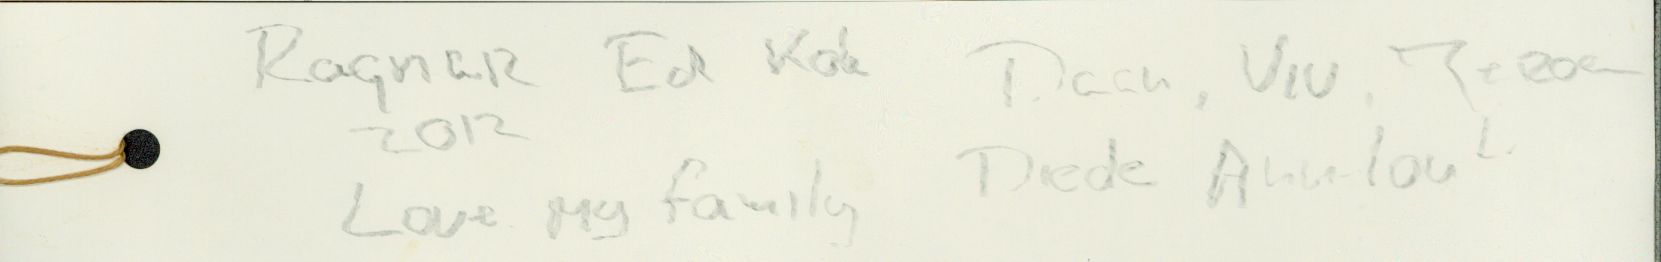 Ragnar Ed Kok
2012
Love my family
Daan, Viv, Jeroen
Diede Annelou L.